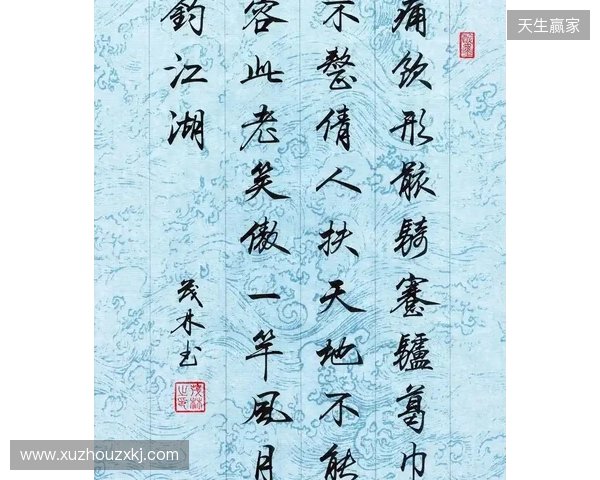 天生赢家
痛飲形骸騎蹇驢葛巾
不整倩人扶天地不能
容此老笑傲一竿風月
釣江湖
茂林书
www.xuzhouzxkj.com